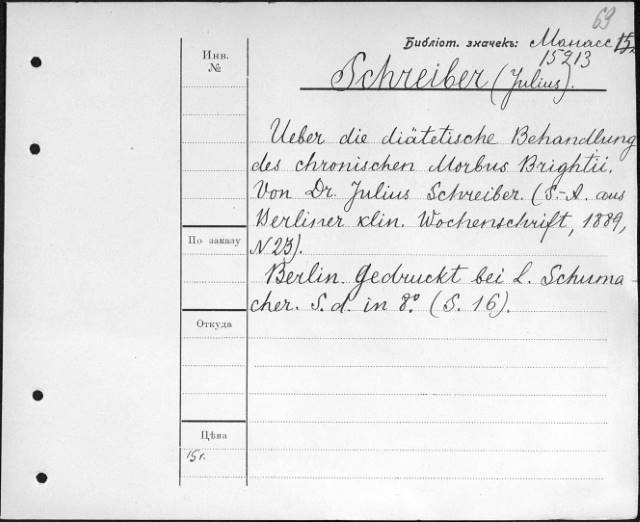 63
Инв.
№
Библіот. значекъ: Манасс 152
15213
Schreiber (Julius).
Ueber die diätetische Behandlung
des chronischen Morbus Brightii.
Von Dr. Julius Schreiber. (S.-A. aus
Berliner klin. Wochenschrift, 1889,
N 23).
По заказу
Berlin. Gedruckt bei L. Schuma-
cher. S. d. in 8.° (S. 16).
Откуда
Цѣна
15 г.